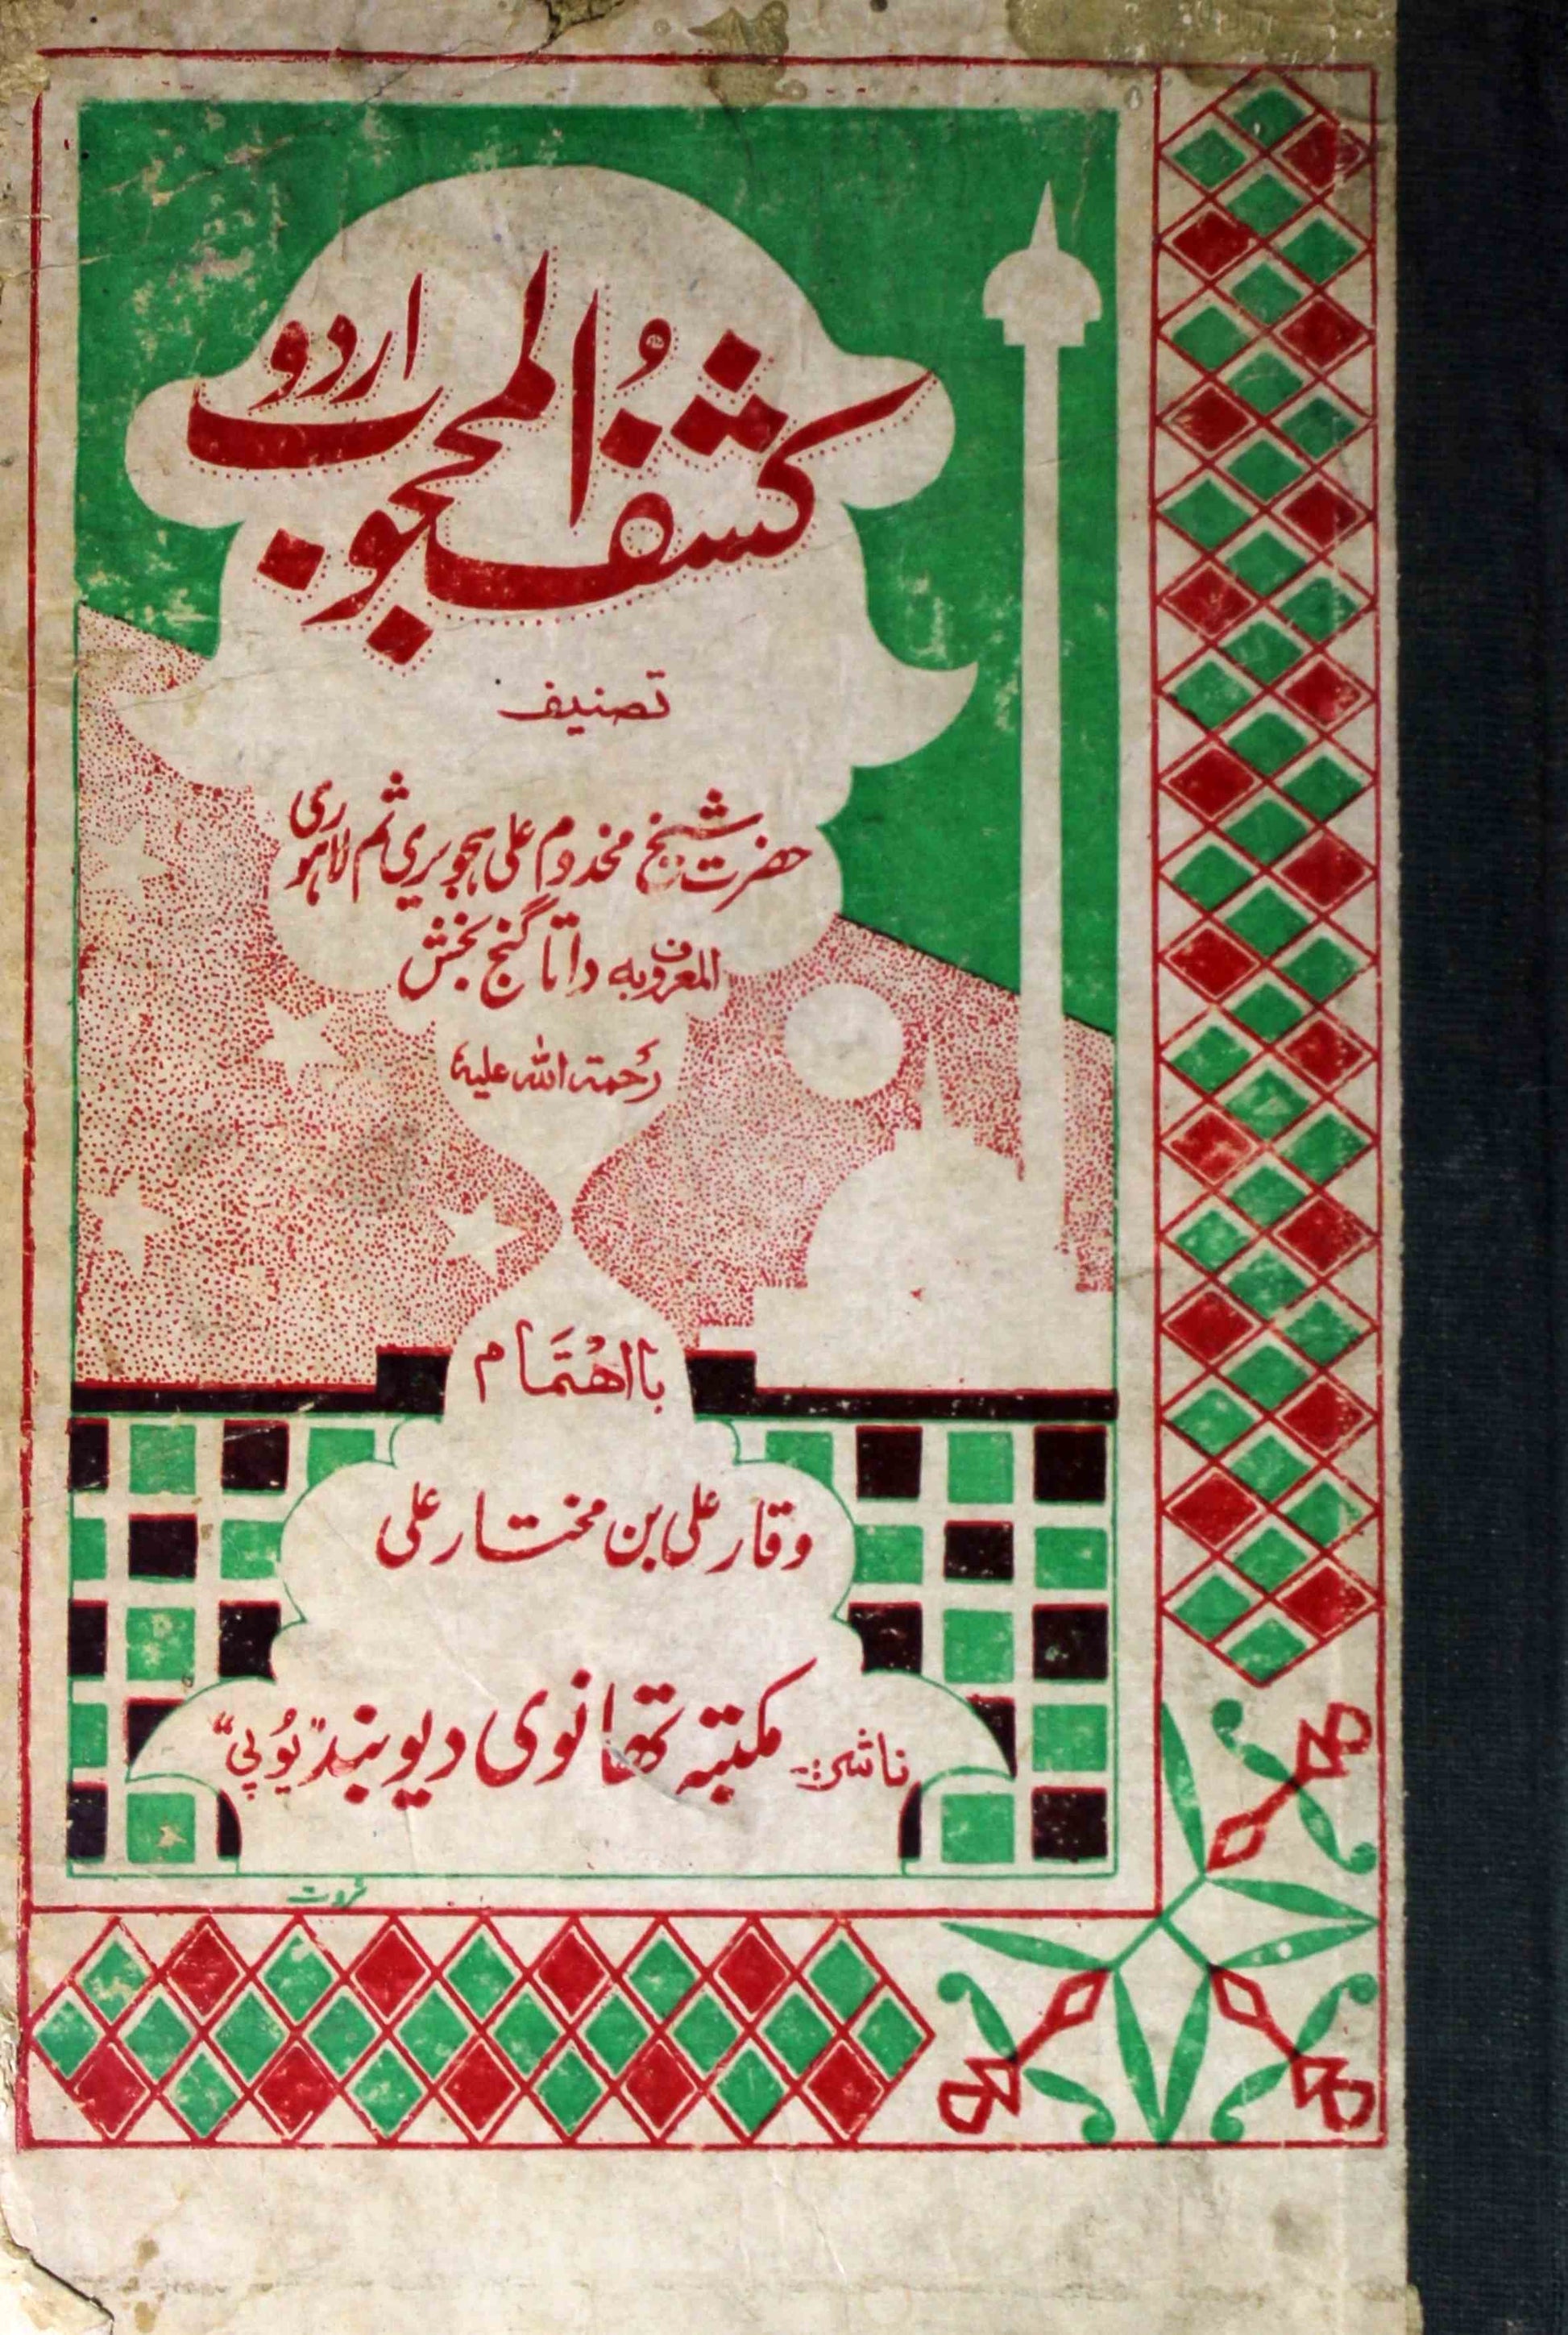 کشفُ المحجوب اردو
تصنیف
حضرت شیخ مخدوم علی ہجویری ثم لاہوری
المعروف بہ داتا گنج بخش
رحمۃ اللہ علیہ
بااہتمام
وقار علی بن مختار علی
ناشر:۔ مکتبہ تھانوی دیوبند "یُوپی"
ثروت